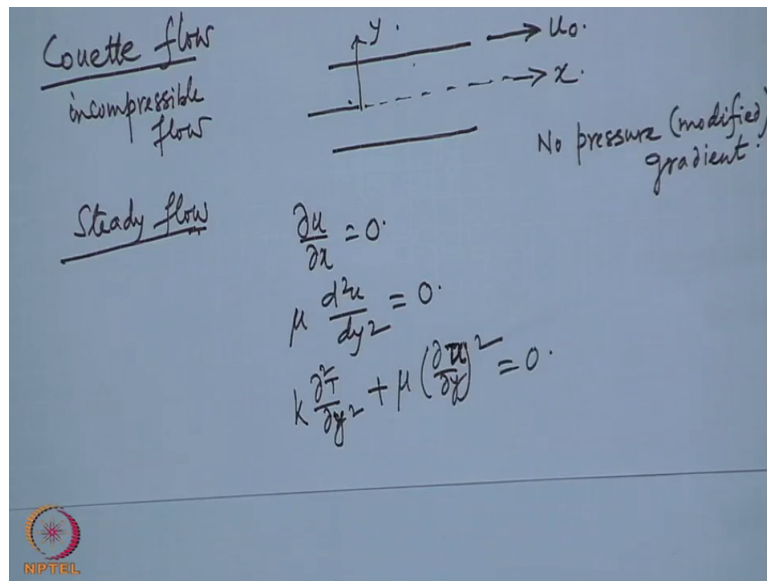 Couette flow
incompressible
flow
y.
u₀.
x.
No pressure (modified)
gradient.
Steady flow
∂u/∂x = 0.
μ d²u/dy² = 0.
k ∂²T/∂y² + μ (∂u/∂y)² = 0.
NPTEL